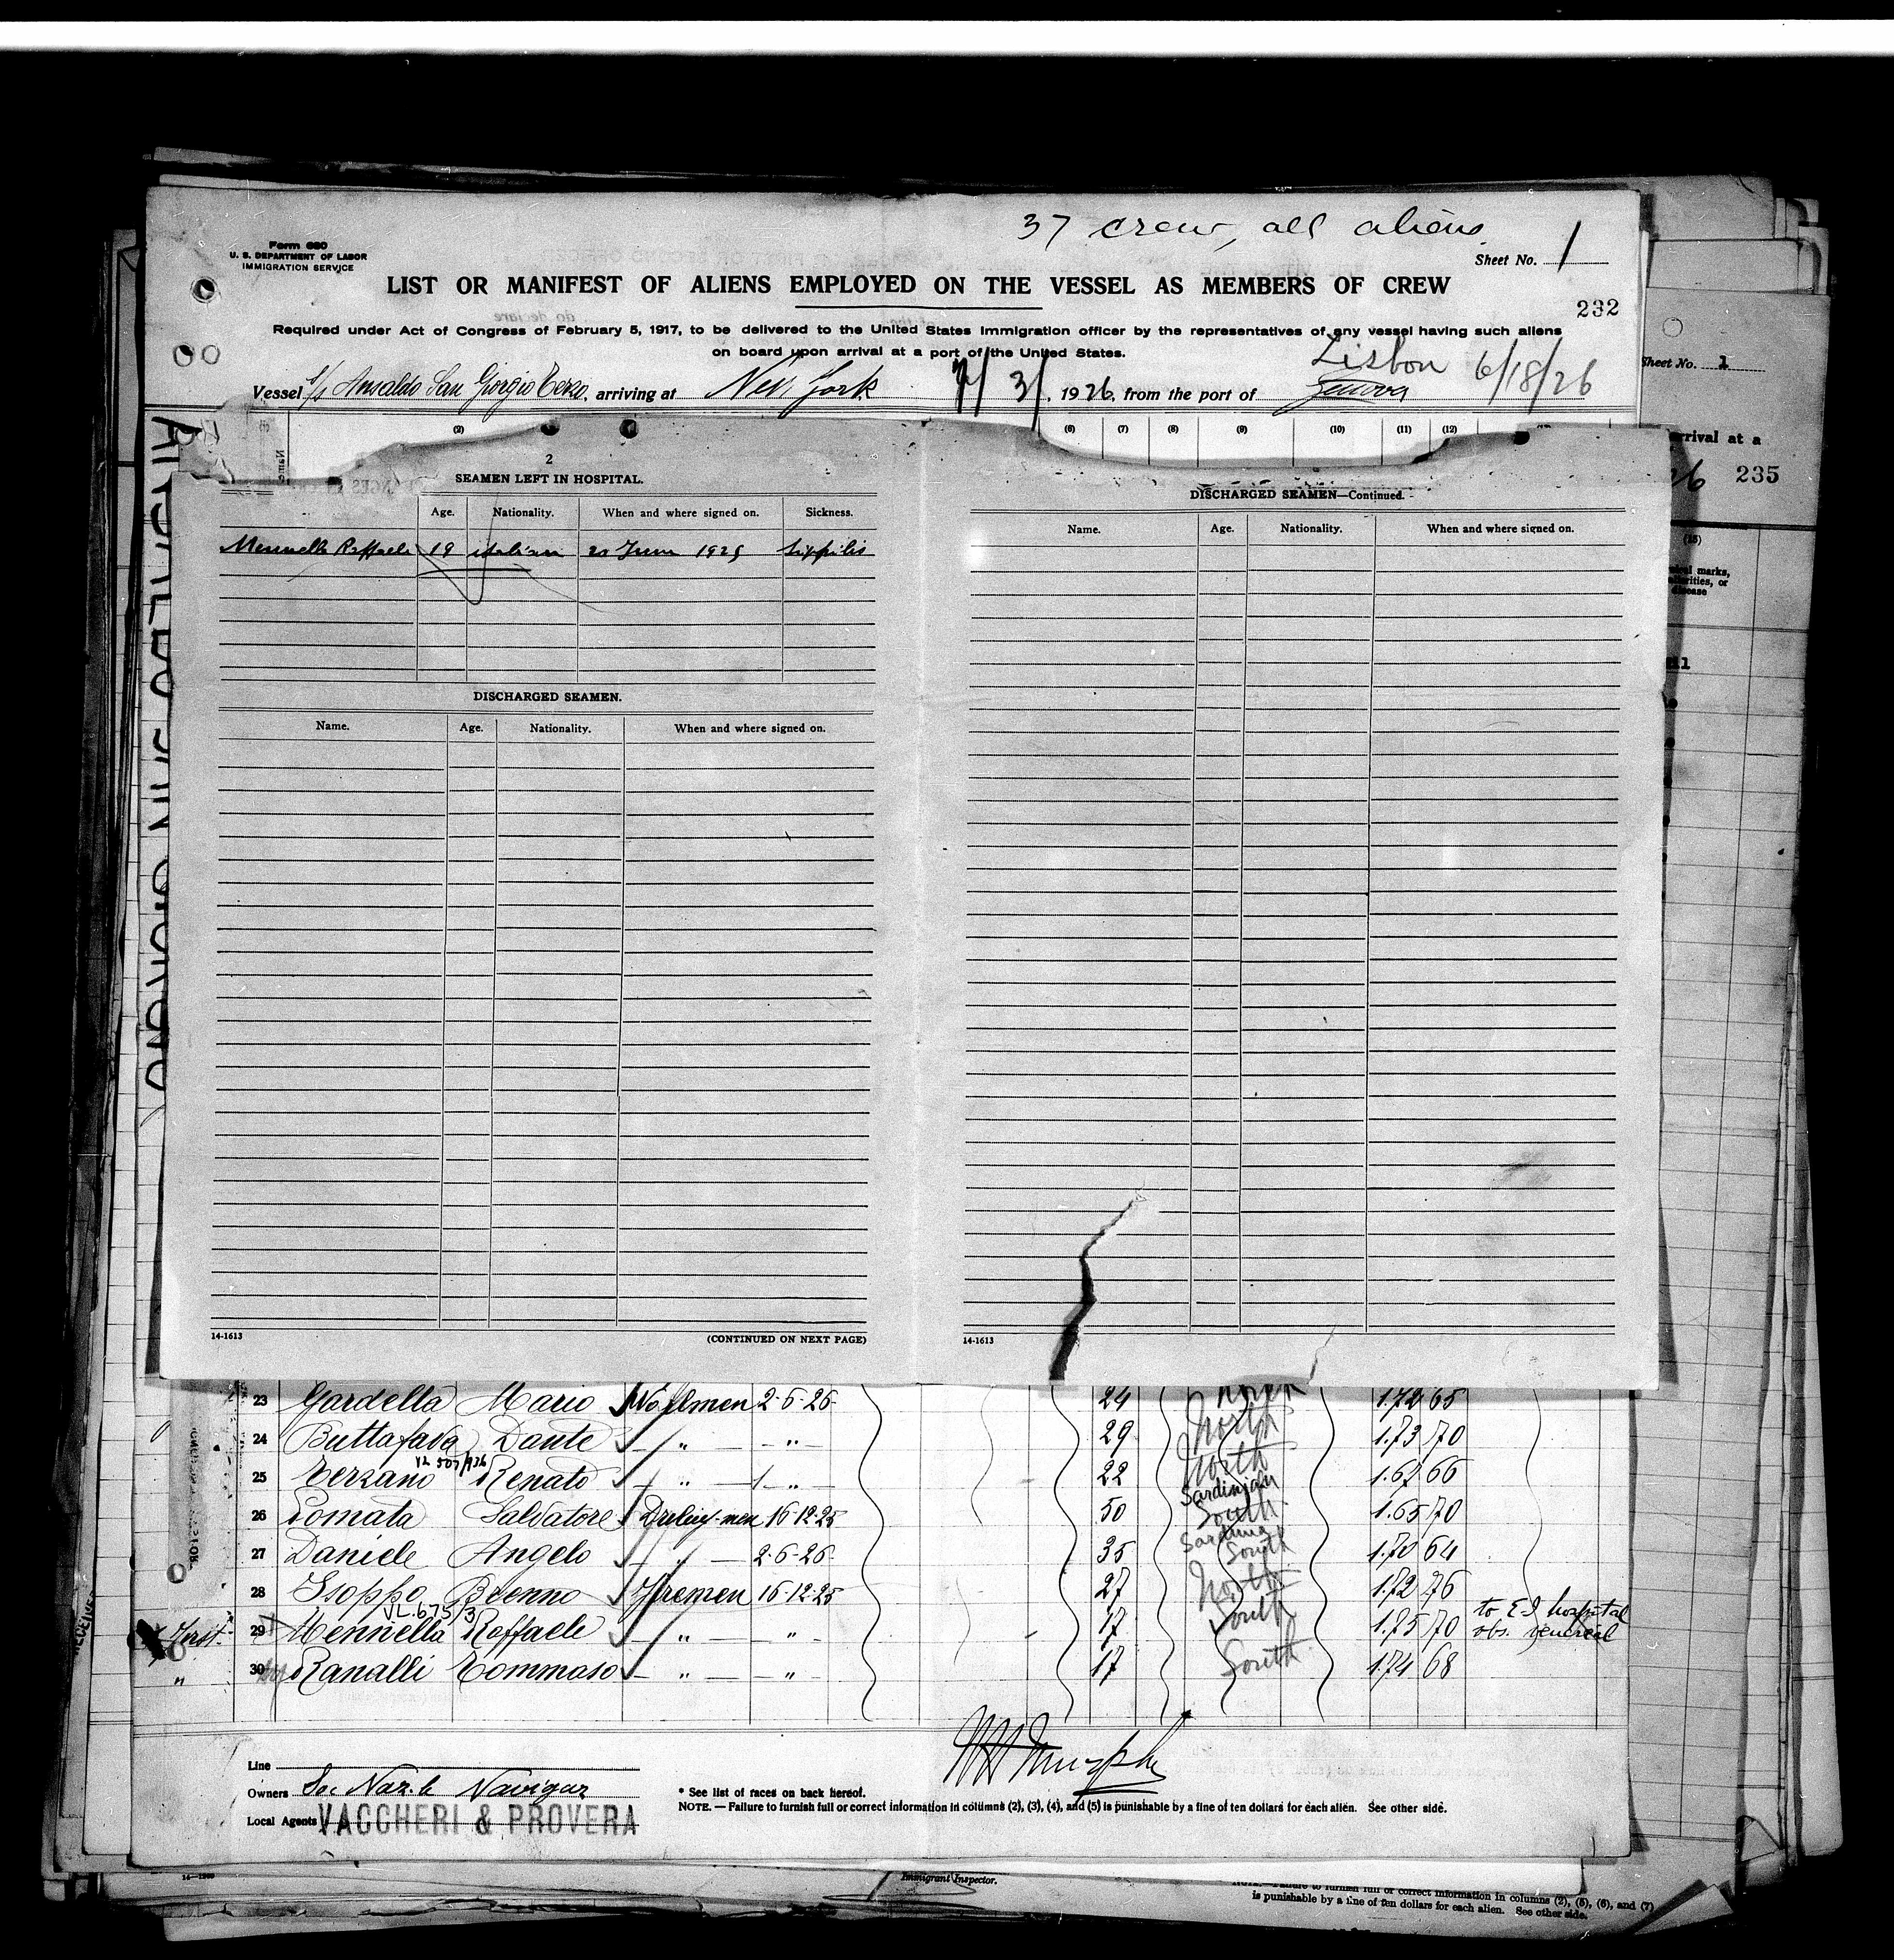 37 crew, all aliens
Form 680
U. S. DEPARTMENT OF LABOR
IMMIGRATION SERVICE
Sheet No. 1
LIST OR MANIFEST OF ALIENS EMPLOYED ON THE VESSEL AS MEMBERS OF CREW
232
Required under Act of Congress of February 5, 1917, to be delivered to the United States immigration officer by the representatives of any vessel having such aliens
on board upon arrival at a port of the United States.
Lisbon 6/18/26
Vessel S/S Ansaldo San Giorgio Terzo, arriving at New York 7/3/, 1926, from the port of Genova
Sheet No. 1
arrival at a
26 235
(3) (6) (7) (8) (9) (10) (11) (12)
2
SEAMEN LEFT IN HOSPITAL.
Age. Nationality. When and where signed on. Sickness.
Mennella Raffaele 19 italian 20 1925 Sippilis
DISCHARGED SEAMEN.
Name. Age. Nationality. When and where signed on.
14-1613 (CONTINUED ON NEXT PAGE)
DISCHARGED SEAMEN—Continued.
Name. Age. Nationality. When and where signed on.
14-1613
(15)
marks,
or
disease
23 Gardella Mario 2-6-26 24 North 1.72 65
24 Buttafava Dante " " 29 North 1.73 70
25 Terzano Renato " " 22 North 1.67 66
26 Pomata Salvatore 16-12-25 50 Sardinian South 1.65 70
27 Daniele Angelo " 2-6-26 35 South 1.70 64
28 Isoppo Brenno Firemen 16-12-25 27 North 1.72 76
First 29 Mennella Raffaele " " 17 South 1.75 70 to E I hospital obs. venereal
" 30 Ranalli Tommaso " " 17 South 1.74 68
Line
Owners Soc. Naz. le Navigaz
Local Agents VACCHERI & PROVERA
* See list of races on back hereof.
NOTE.—Failure to furnish full or correct information in columns (2), (3), (4), and (5) is punishable by a fine of ten dollars for each alien. See other side.
Immigrant Inspector.
Failure to furnish full or correct information in columns (2), (5), (6), and (7)
is punishable by a fine of ten dollars for each alien. See other side.